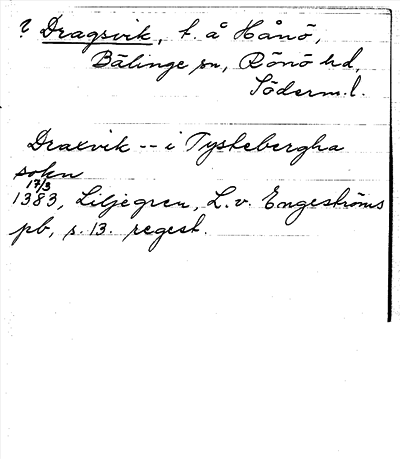 ? Dragsvik, t. å Hånö,
Bälinge sn, Rönö hd,
Söderm. l.
Draxvik -- i Tystebergha
sokn
17/3
1383, Liljegren, L. v. Engeströms
pb, s. 13. regest.